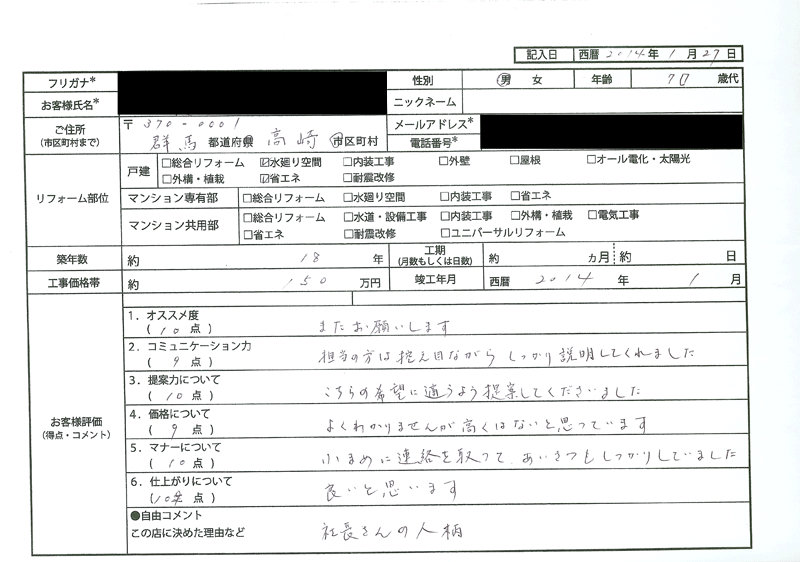 記入日 西暦 2014 年 1 月 27 日
フリガナ*
お客様氏名*
性別 男 女 年齢 70 歳代
ニックネーム
ご住所
(市区町村まで)
〒 370-0001
群馬 都道府県 高崎 市区町村
メールアドレス*
電話番号*
リフォーム部位
戸建 □総合リフォーム ☑水廻り空間 □内装工事 □外壁 □屋根 □オール電化・太陽光
□外構・植栽 ☑省エネ □耐震改修
マンション専有部 □総合リフォーム □水廻り空間 □内装工事 □省エネ
マンション共用部 □総合リフォーム □水道・設備工事 □内装工事 □外構・植栽 □電気工事
□省エネ □耐震改修 □ユニバーサルリフォーム
築年数 約 18 年 工期 (月数もしくは日数) 約 ヵ月 約 日
工事価格帯 約 150 万円 竣工年月 西暦 2014 年 1 月
お客様評価
(得点・コメント)
1．オススメ度
( 10 点 ) またお願いします
2．コミュニケーション力
( 9 点 ) 担当の方は控え目ながら しっかり説明してくれました
3．提案力について
( 10 点 ) こちらの希望に適うよう提案してくださいました
4．価格について
( 9 点 ) よくわかりませんが高くはないと思っています
5．マナーについて
( 10 点 ) 小まめに連絡を取って、あいさつもしっかりしていました
6．仕上がりについて
(10 点 ) 良いと思います
●自由コメント
この店に決めた理由など 社長さんの人柄